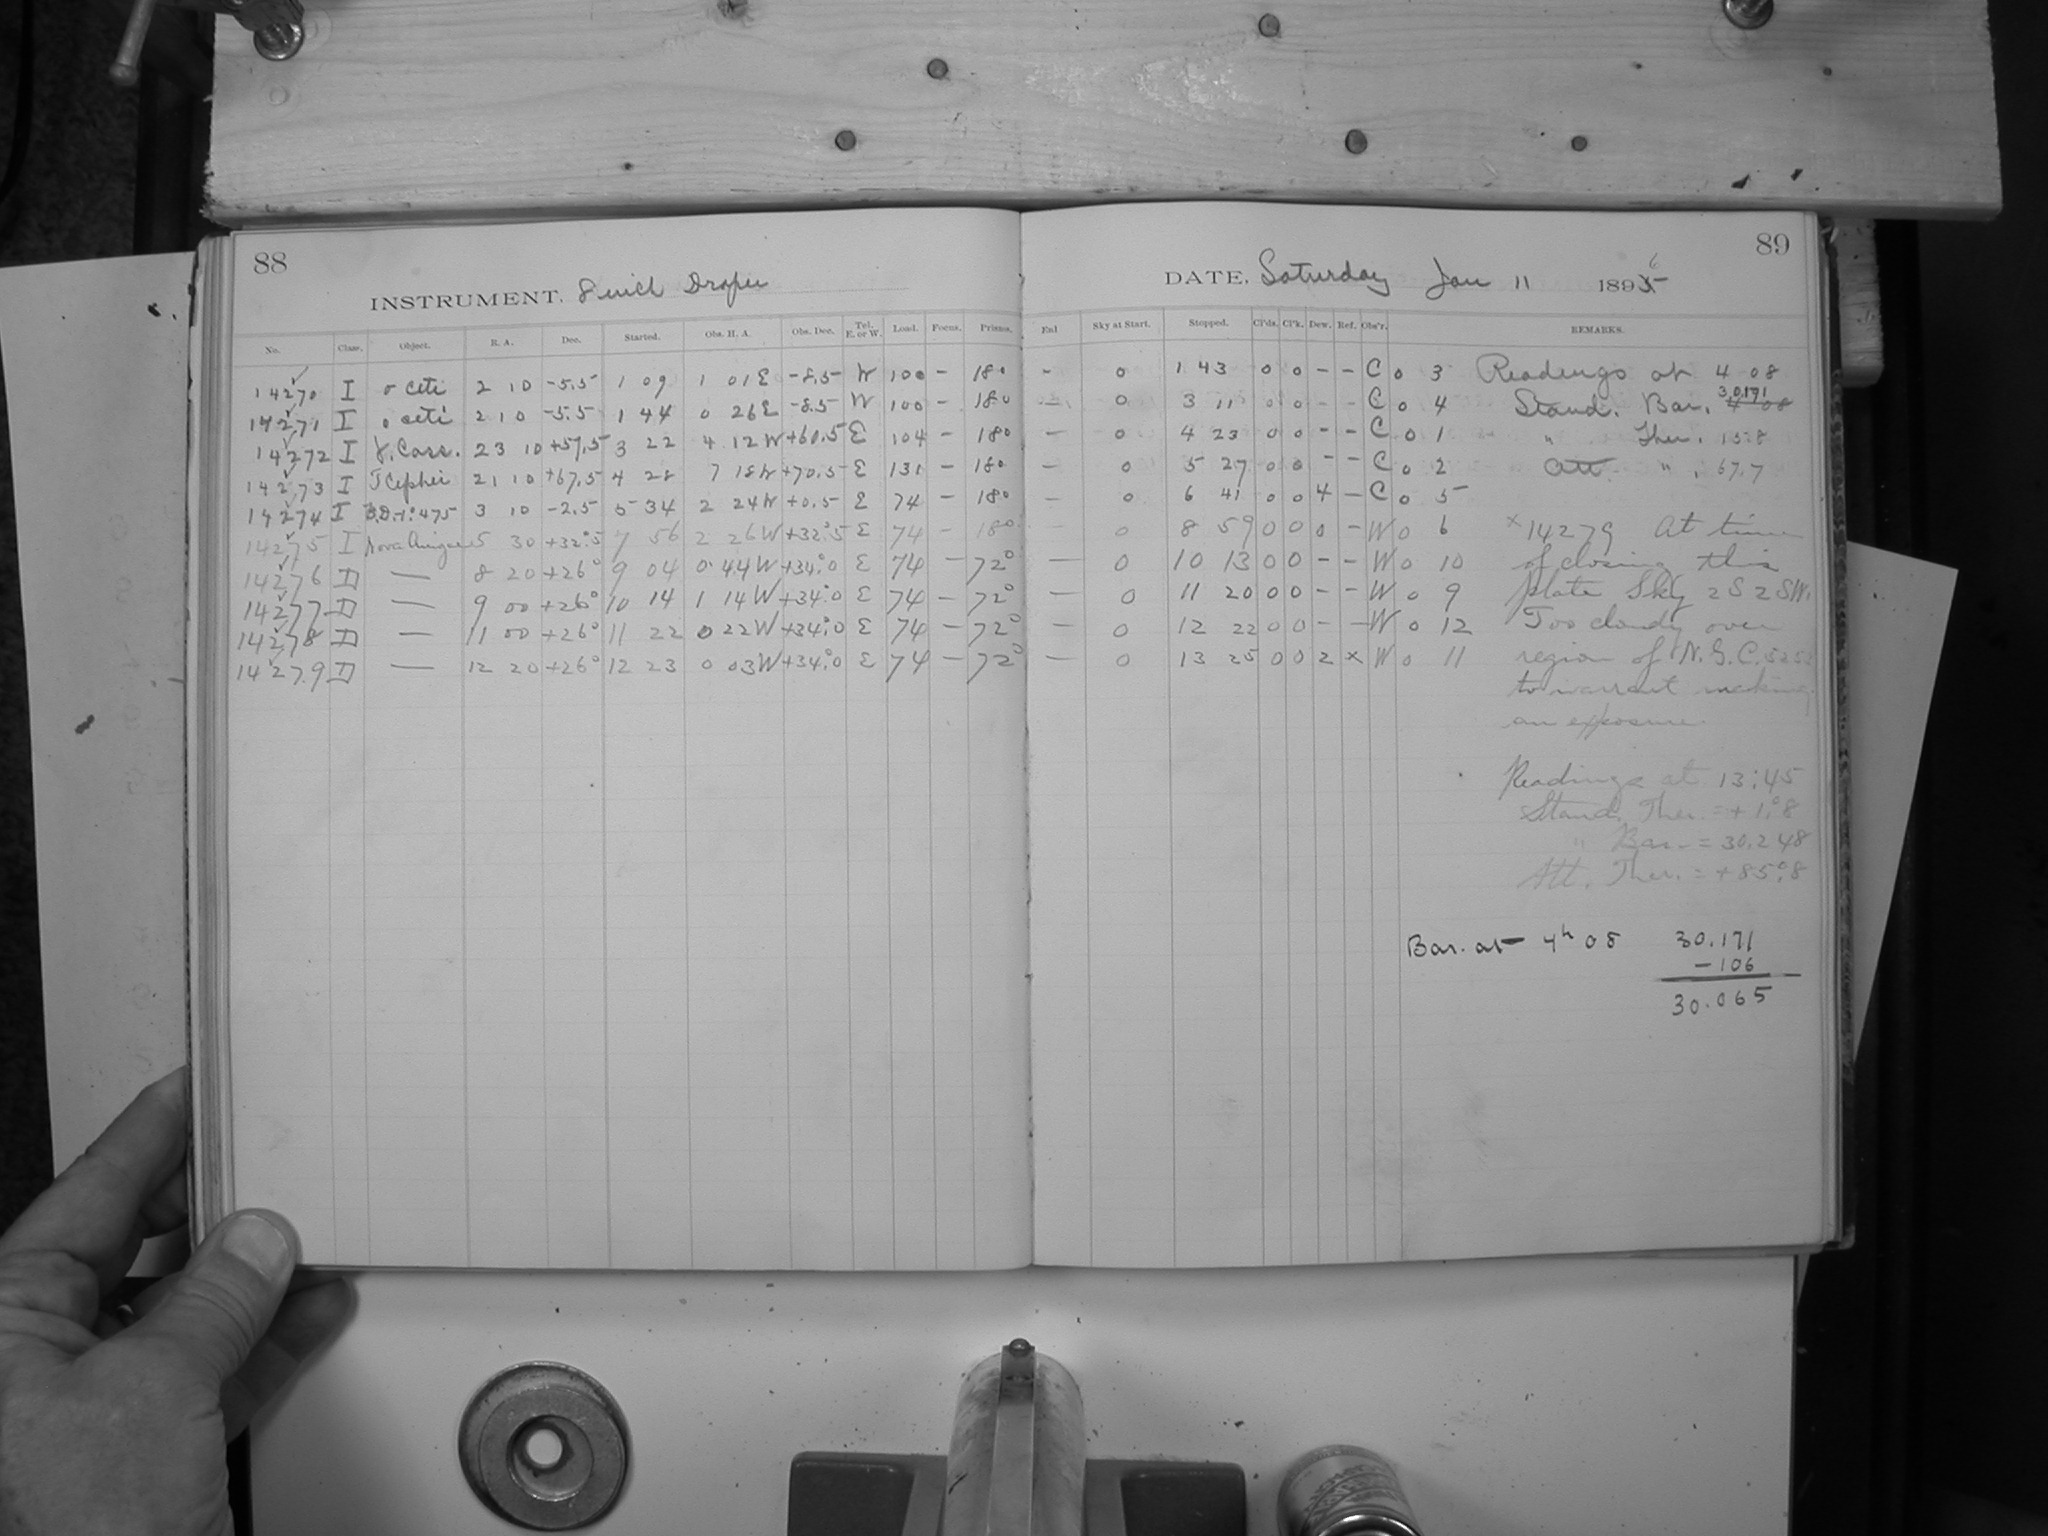 88
INSTRUMENT. 8 inch Draper
No. Class. Object. R. A. Dec. Started. Obs. H. A. Obs. Dec. Tel. E. or W. Load. Focus. Prisms.
14270 I o Ceti 2 10 -5.5 1 09 1 01E -8.5 W 100 - 180
14271 I o Ceti 2 10 -5.5 1 44 0 26E -8.5 W 100 - 180
14272 I γ. Cass. 23 10 +57.5 3 22 4 12W +60.5 E 104 - 180
14273 I T Cephei 21 10 +67.5 4 28 7 18W +70.5 E 131 - 180
14274 I B.D.-1°475 3 10 -2.5 5 34 2 24W +0.5 E 74 - 180
14275 I Nova Aurigae 5 30 +32°.5 7 56 2 26W +32°.5 E 74 - 180
14276 D — 8 20 +26° 9 04 0 44W +34°.0 E 74 - 72°
14277 D — 9 00 +26° 10 14 1 14W +34°.0 E 74 - 72°
14278 D — 11 00 +26° 11 22 0 22W +34°.0 E 74 - 72°
14279 D — 12 20 +26° 12 23 0 03W +34°.0 E 74 - 72°
89
DATE. Saturday Jan 11 1895 6
End Sky at Start. Stopped. Cl'ds. Cl'k. Dew. Ref. Obs'r. REMARKS.
- 0 1 43 0 0 - - C 0 3 Readings at 4 08
— 0 3 11 0 0 - - C 0 4 Stand. Bar. 4 08 30.171
— 0 4 23 0 0 - - C 0 1 " Ther. 15.8
— 0 5 27 0 0 - - C 0 2 Att. " . 67.7
— 0 6 41 0 0 4 - C 0 5
0 8 59 0 0 0 - W 0 6 x14279 At time
— 0 10 13 0 0 - - W 0 10 of closing this
— 0 11 20 0 0 - - W 0 9 plate Sky 2S 2SW.
— 0 12 22 0 0 - - W 0 12 Too cloudy over
— 0 13 25 0 0 2 x W 0 11 region of N.G.C. 5253
to warrant making
an exposure.
Readings at 13:45
Stand. Ther. = +1°.8
" Bar. = 30.248
Att. Ther. = +85°.8
Bar. at 4h 08 30.171
-106
30.065